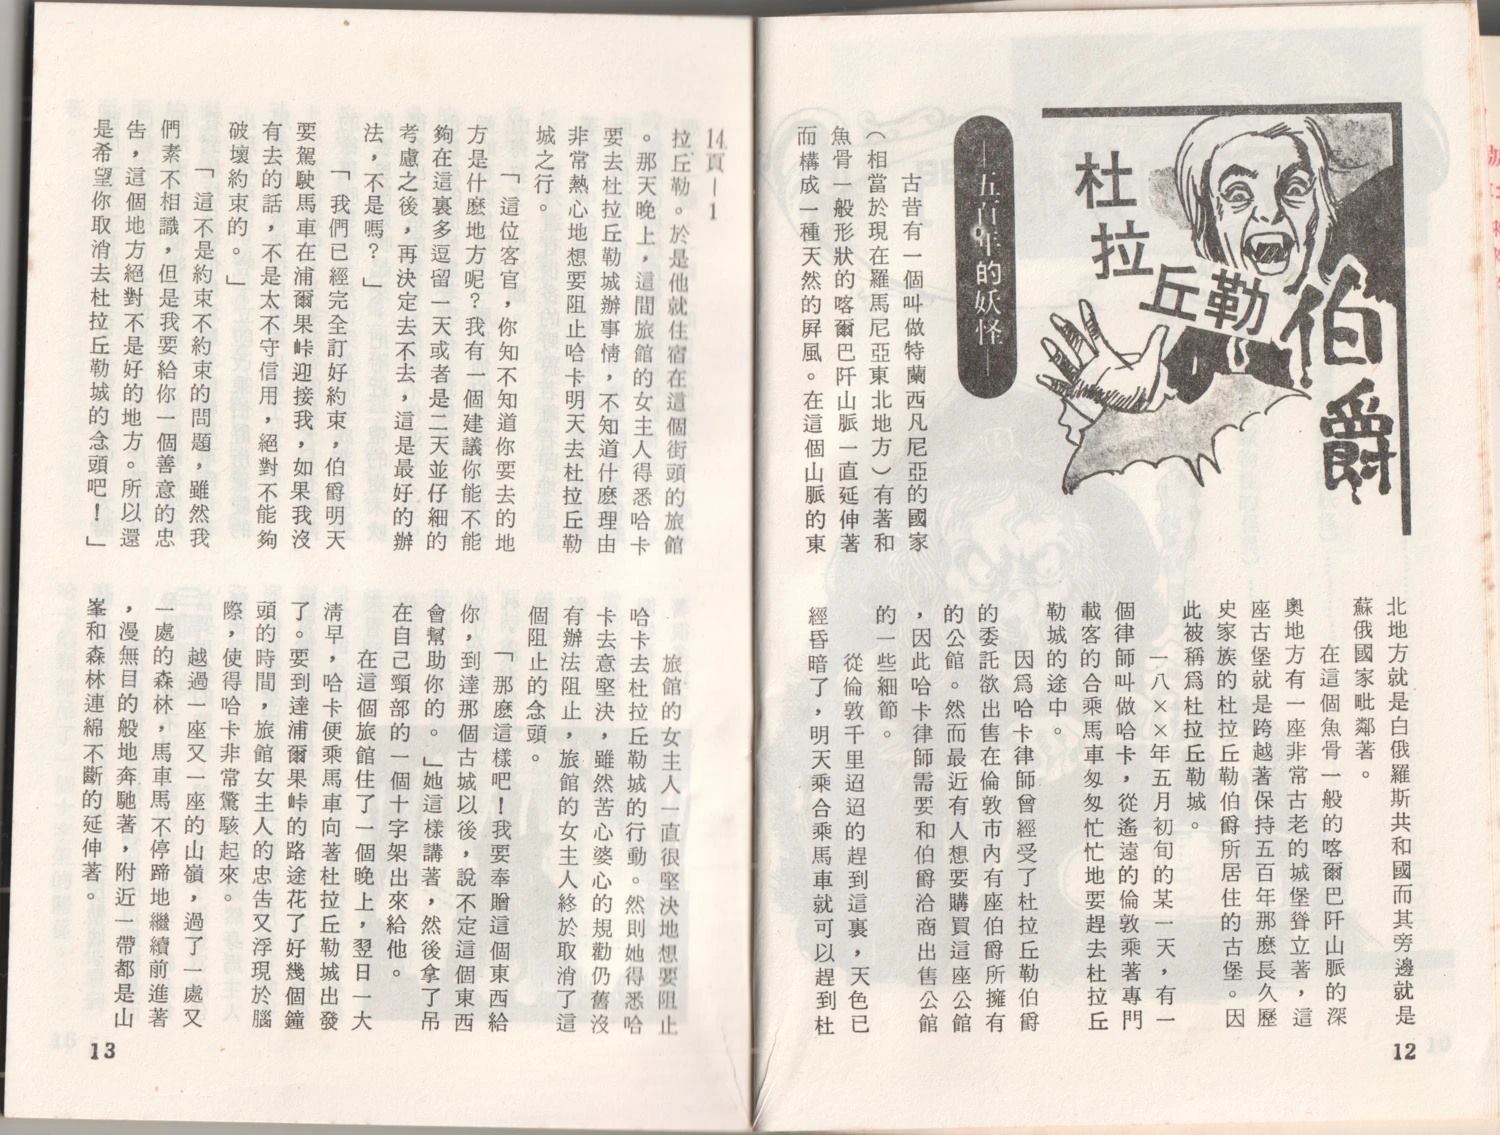 杜拉丘勒伯爵
—五百年的妖怪—
古昔有一個叫做特蘭西凡尼亞的國家
（相當於現在羅馬尼亞東北地方）有著和
魚骨一般形狀的喀爾巴阡山脈一直延伸著
而構成一種天然的屏風。在這個山脈的東
北地方就是白俄羅斯共和國而其旁邊就是
蘇俄國家毗鄰著。
在這個魚骨一般的喀爾巴阡山脈的深
奧地方有一座非常古老的城堡聳立著，這
座古堡就是跨越著保持五百年那麽長久歷
史家族的杜拉丘勒伯爵所居住的古堡。因
此被稱爲杜拉丘勒城。
一八××年五月初旬的某一天，有一
個律師叫做哈卡，從遙遠的倫敦乘著專門
載客的合乘馬車匆匆忙忙地要趕去杜拉丘
勒城的途中。
因爲哈卡律師曾經受了杜拉丘勒伯爵
的委託欲出售在倫敦市內有座伯爵所擁有
的公館。然而最近有人想要購買這座公館
，因此哈卡律師需要和伯爵洽商出售公館
的一些細節。
從倫敦千里迢迢的趕到這裏，天色已
經昏暗了，明天乘合乘馬車就可以趕到杜
12
14頁—1
拉丘勒。於是他就住宿在這個街頭的旅館
。那天晚上，這間旅館的女主人得悉哈卡
要去杜拉丘勒城辦事情，不知道什麽理由
非常熱心地想要阻止哈卡明天去杜拉丘勒
城之行。
「這位客官，你知不知道你要去的地
方是什麽地方呢？我有一個建議你能不能
夠在這裏多逗留一天或者是二天並仔細的
考慮之後，再決定去不去，這是最好的辦
法，不是嗎？」
「我們已經完全訂好約束，伯爵明天
要駕駛馬車在浦爾果峠迎接我，如果我沒
有去的話，不是太不守信用，絕對不能夠
破壞約束的。」
「這不是約束不約束的問題，雖然我
們素不相識，但是我要給你一個善意的忠
告，這個地方絕對不是好的地方。所以還
是希望你取消去杜拉丘勒城的念頭吧！」
旅館的女主人一直很堅決地想要阻止
哈卡去杜拉丘勒城的行動。然則她得悉哈
卡去意堅決，雖然苦心婆心的規勸仍舊沒
有辦法阻止，旅館的女主人終於取消了這
個阻止的念頭。
「那麽這樣吧！我要奉贈這個東西給
你，到達那個古城以後，說不定這個東西
會幫助你的。」她這樣講著，然後拿了吊
在自己頸部的一個十字架出來給他。
在這個旅館住了一個晚上，翌日一大
淸早，哈卡便乘馬車向著杜拉丘勒城出發
了。要到達浦爾果峠的路途花了好幾個鐘
頭的時間，旅館女主人的忠告又浮現於腦
際，使得哈卡非常驚駭起來。
越過一座又一座的山嶺，過了一處又
一處的森林，馬車馬不停蹄地繼續前進著
，漫無目的般地奔馳著，附近一帶都是山
峯和森林連綿不斷的延伸著。
13